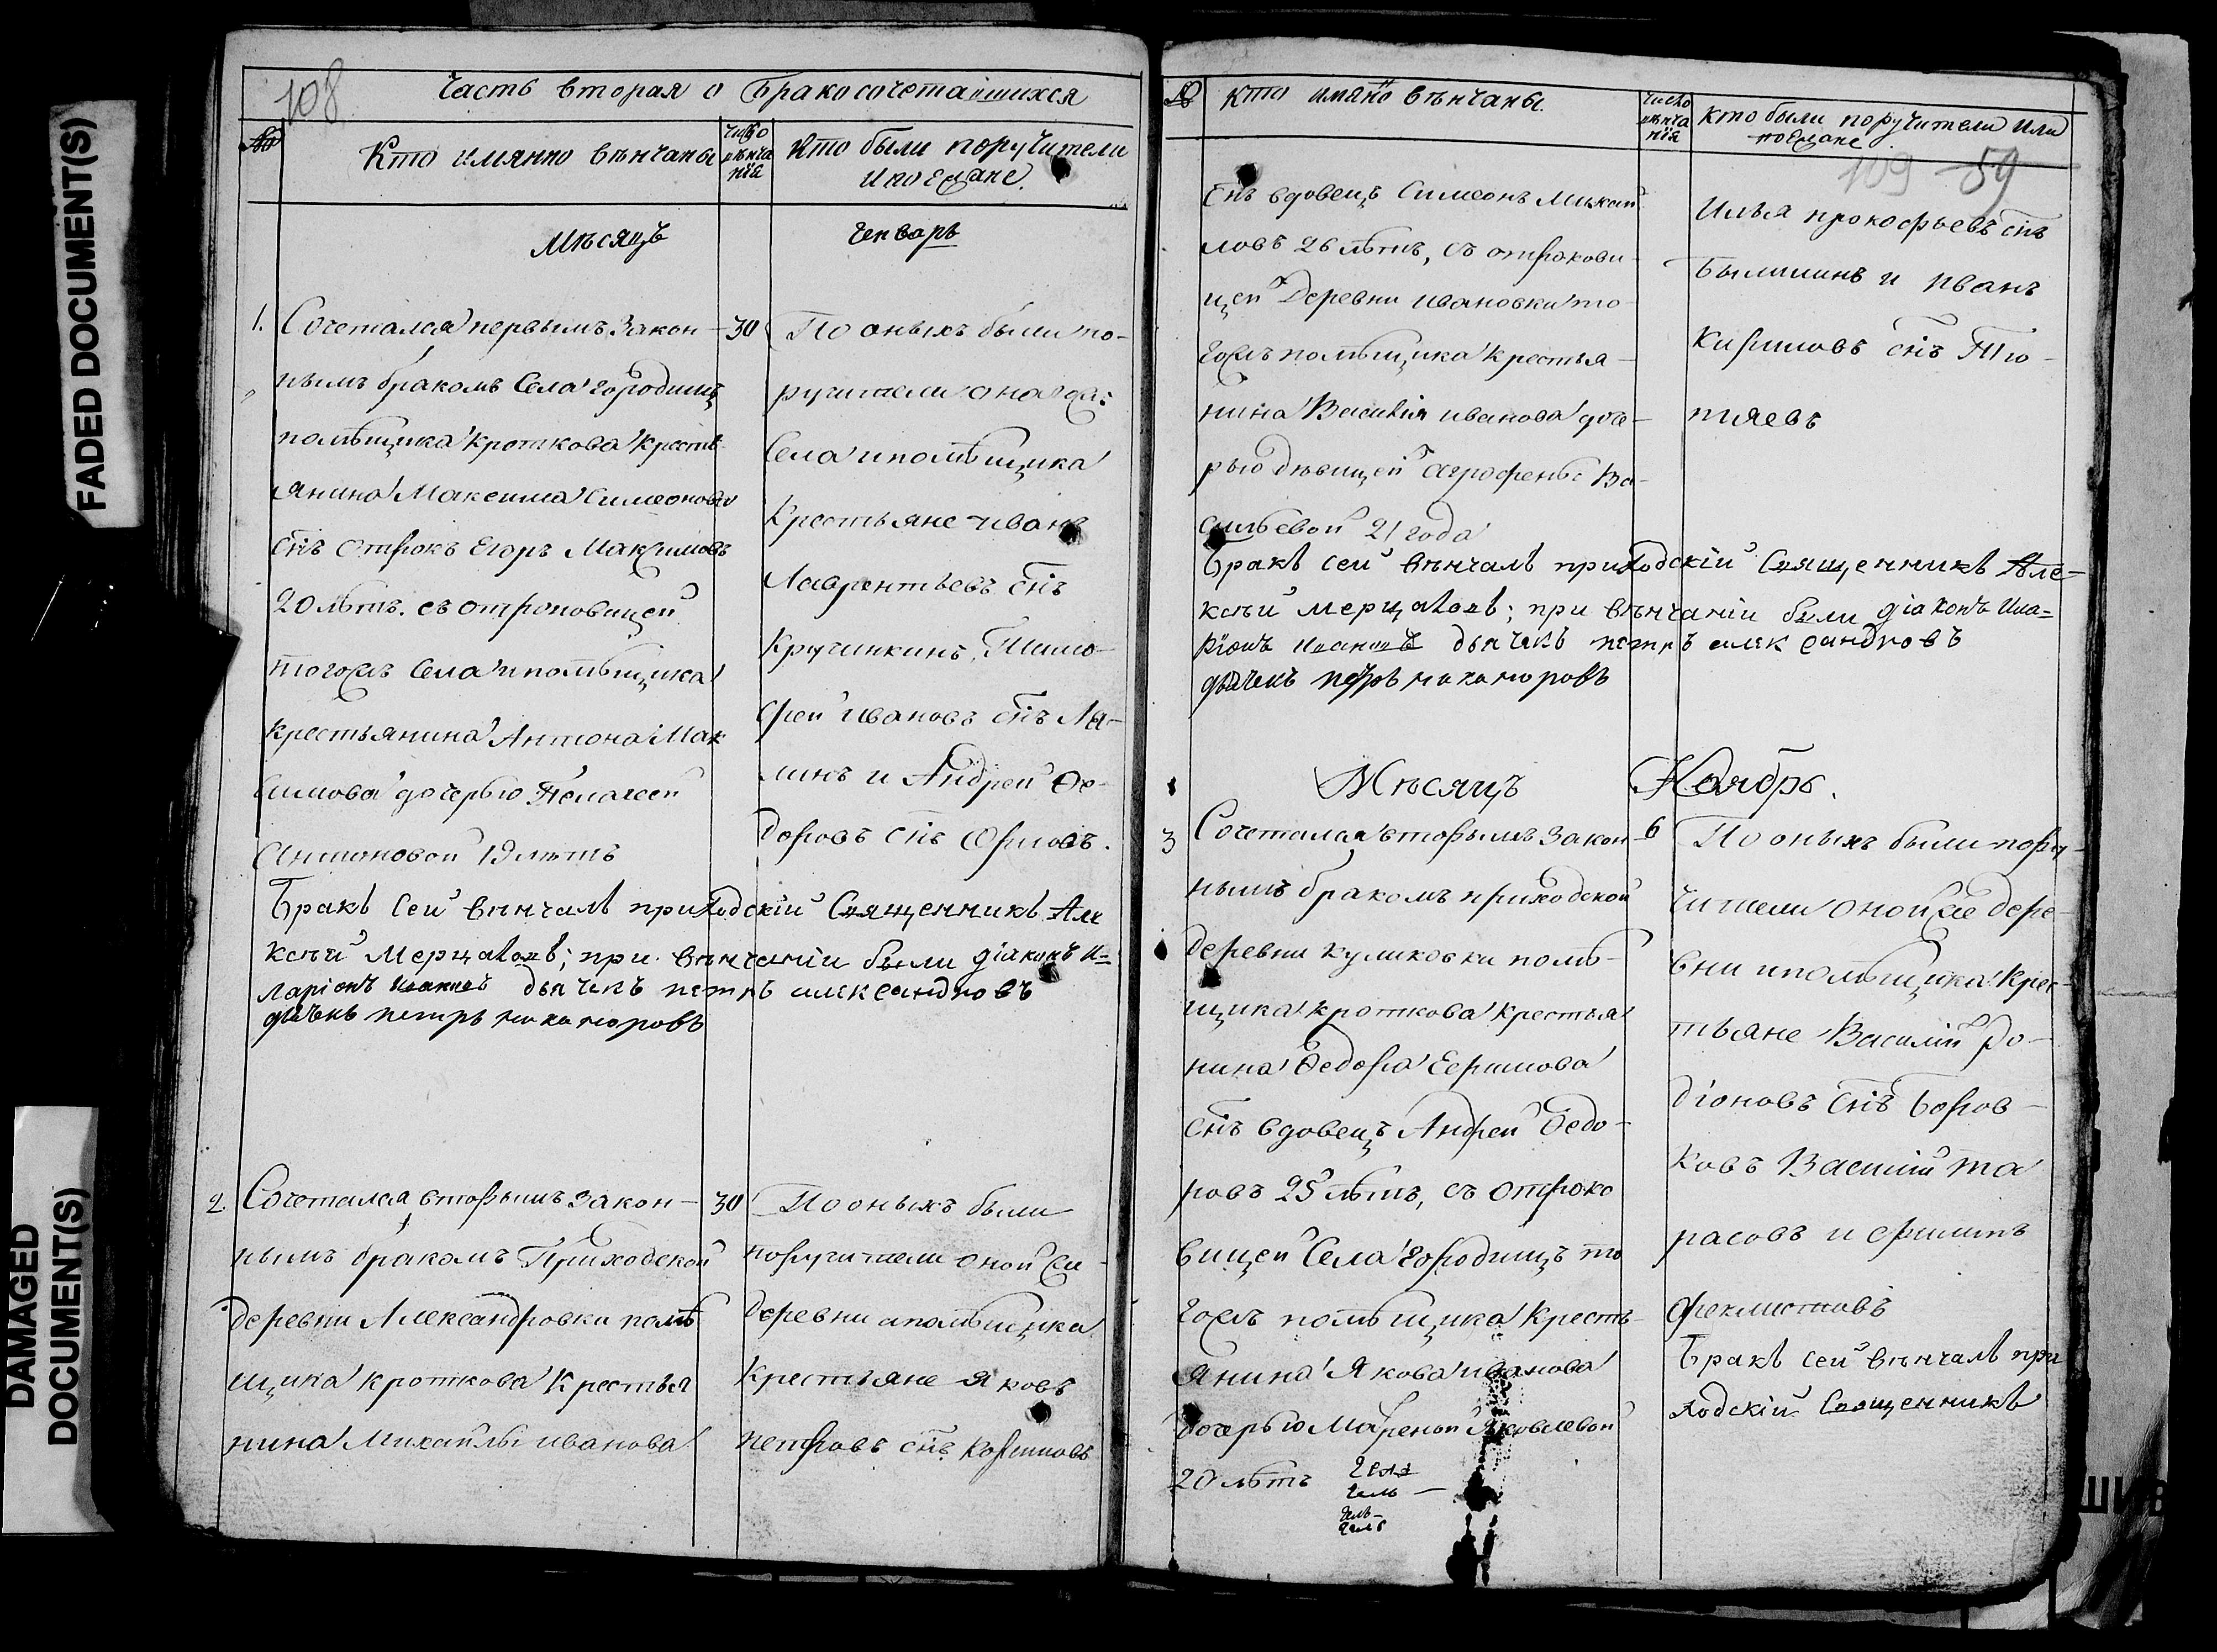 FADED DOCUMENT(S)
DAMAGED
DOCUMENT(S)
108
Часть вторая о бракосочетавшихся
№
Кто имянно вѣнчаны
число
вѣнча
нїя
Кто были поручители
и поезжане.
Мѣсяцъ
Генварь
1.
Сочетался первымъ закон-
нымъ бракомъ села городищъ
помѣщика Кроткова кресть
янина Максима Симеонова
снъ отрокъ Егоръ Максимовъ
20 лѣтъ. съ отроковицей
тогожъ села и помѣщика
крестьянина Антона Мак
симова дочерью Пелагеей
Антоновой 19 лѣтъ
30
По оныхъ были по-
ручители онаго же
села и помѣщика
крестьяне иванъ
Лаврентьевъ снъ
Кручинкинъ, Тимо-
фей ивановъ снъ Ля-
линъ и Андрей Ѳе-
доровъ снъ
Бракъ сей вѣнчалъ приходскїй Священникъ Але
ксѣй Мерцаловъ; при вѣнчанїи были дїаконъ И=
ларїонъ дьячекъ петръ александровъ
дьячекъ петръ никаноровъ
2.
Сочетался вторымъ закон-
нымъ бракомъ Приходской
деревни Александровки помѣ
щика Кроткова крестья
нина Михайлы иванова
30
По оныхъ были
поручители оной же
деревни и помѣщика
крестьяне Яковъ
петровъ снъ
№
кто имяно вѣнчаны.
число
вѣнча
нїя
кто были поручители или
поезжане.
109 59
снъ вдовецъ Симеонъ Михай
ловъ 26 лѣтъ, съ отрокови-
цей деревни ивановки то-
гожъ помѣщика крестья-
нина Василїя иванова доче-
рью дѣвицей Агрофеной Ва-
сильевой 21 года
Илья прокофьевъ снъ
и иванъ
снъ
Бракъ сей вѣнчалъ приходскїй Священникъ Але-
ксѣй Мерцаловъ; при вѣнчанїи были дїаконъ Ила=
рїонъ дьячекъ петръ александровъ
дьячекъ петръ никаноровъ
Мѣсяцъ
Ноябрь.
3
Сочетался вторымъ закон-
нымъ бракомъ приходской
деревни куликовки помѣ-
щика кроткова крестья
нина Ѳедора
снъ вдовецъ Андрей Ѳедо-
ровъ 25 лѣтъ, съ отроко
вицей Села городищъ то
гожъ помѣщика Кресть-
янина Якова иванова
дочерью Матреной Яковлевой
20 лѣтъ
6
По оныхъ были пору-
чители оной же дере-
вни и помѣщика крес-
тьяне Василїй Ро-
дїоновъ снъ Боров-
ковъ Василїй та
расовъ и филипъ
феклистовъ
Бракъ сей вѣнчалъ при
ходскїй Священникъ